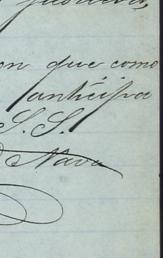 on que como
anticipa
S. S.
Nava